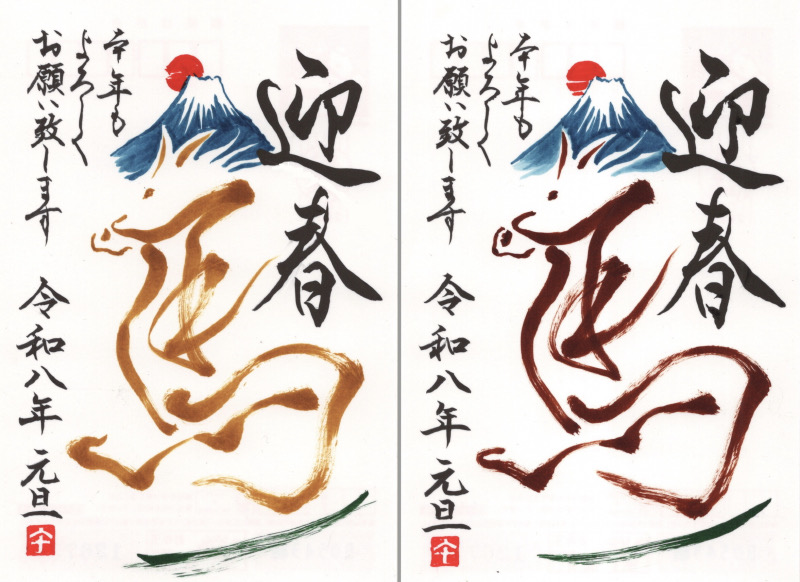 迎春
馬
本年も
よろしく
お願い致します
令和八年 元旦
迎春
馬
本年も
よろしく
お願い致します
令和八年 元旦